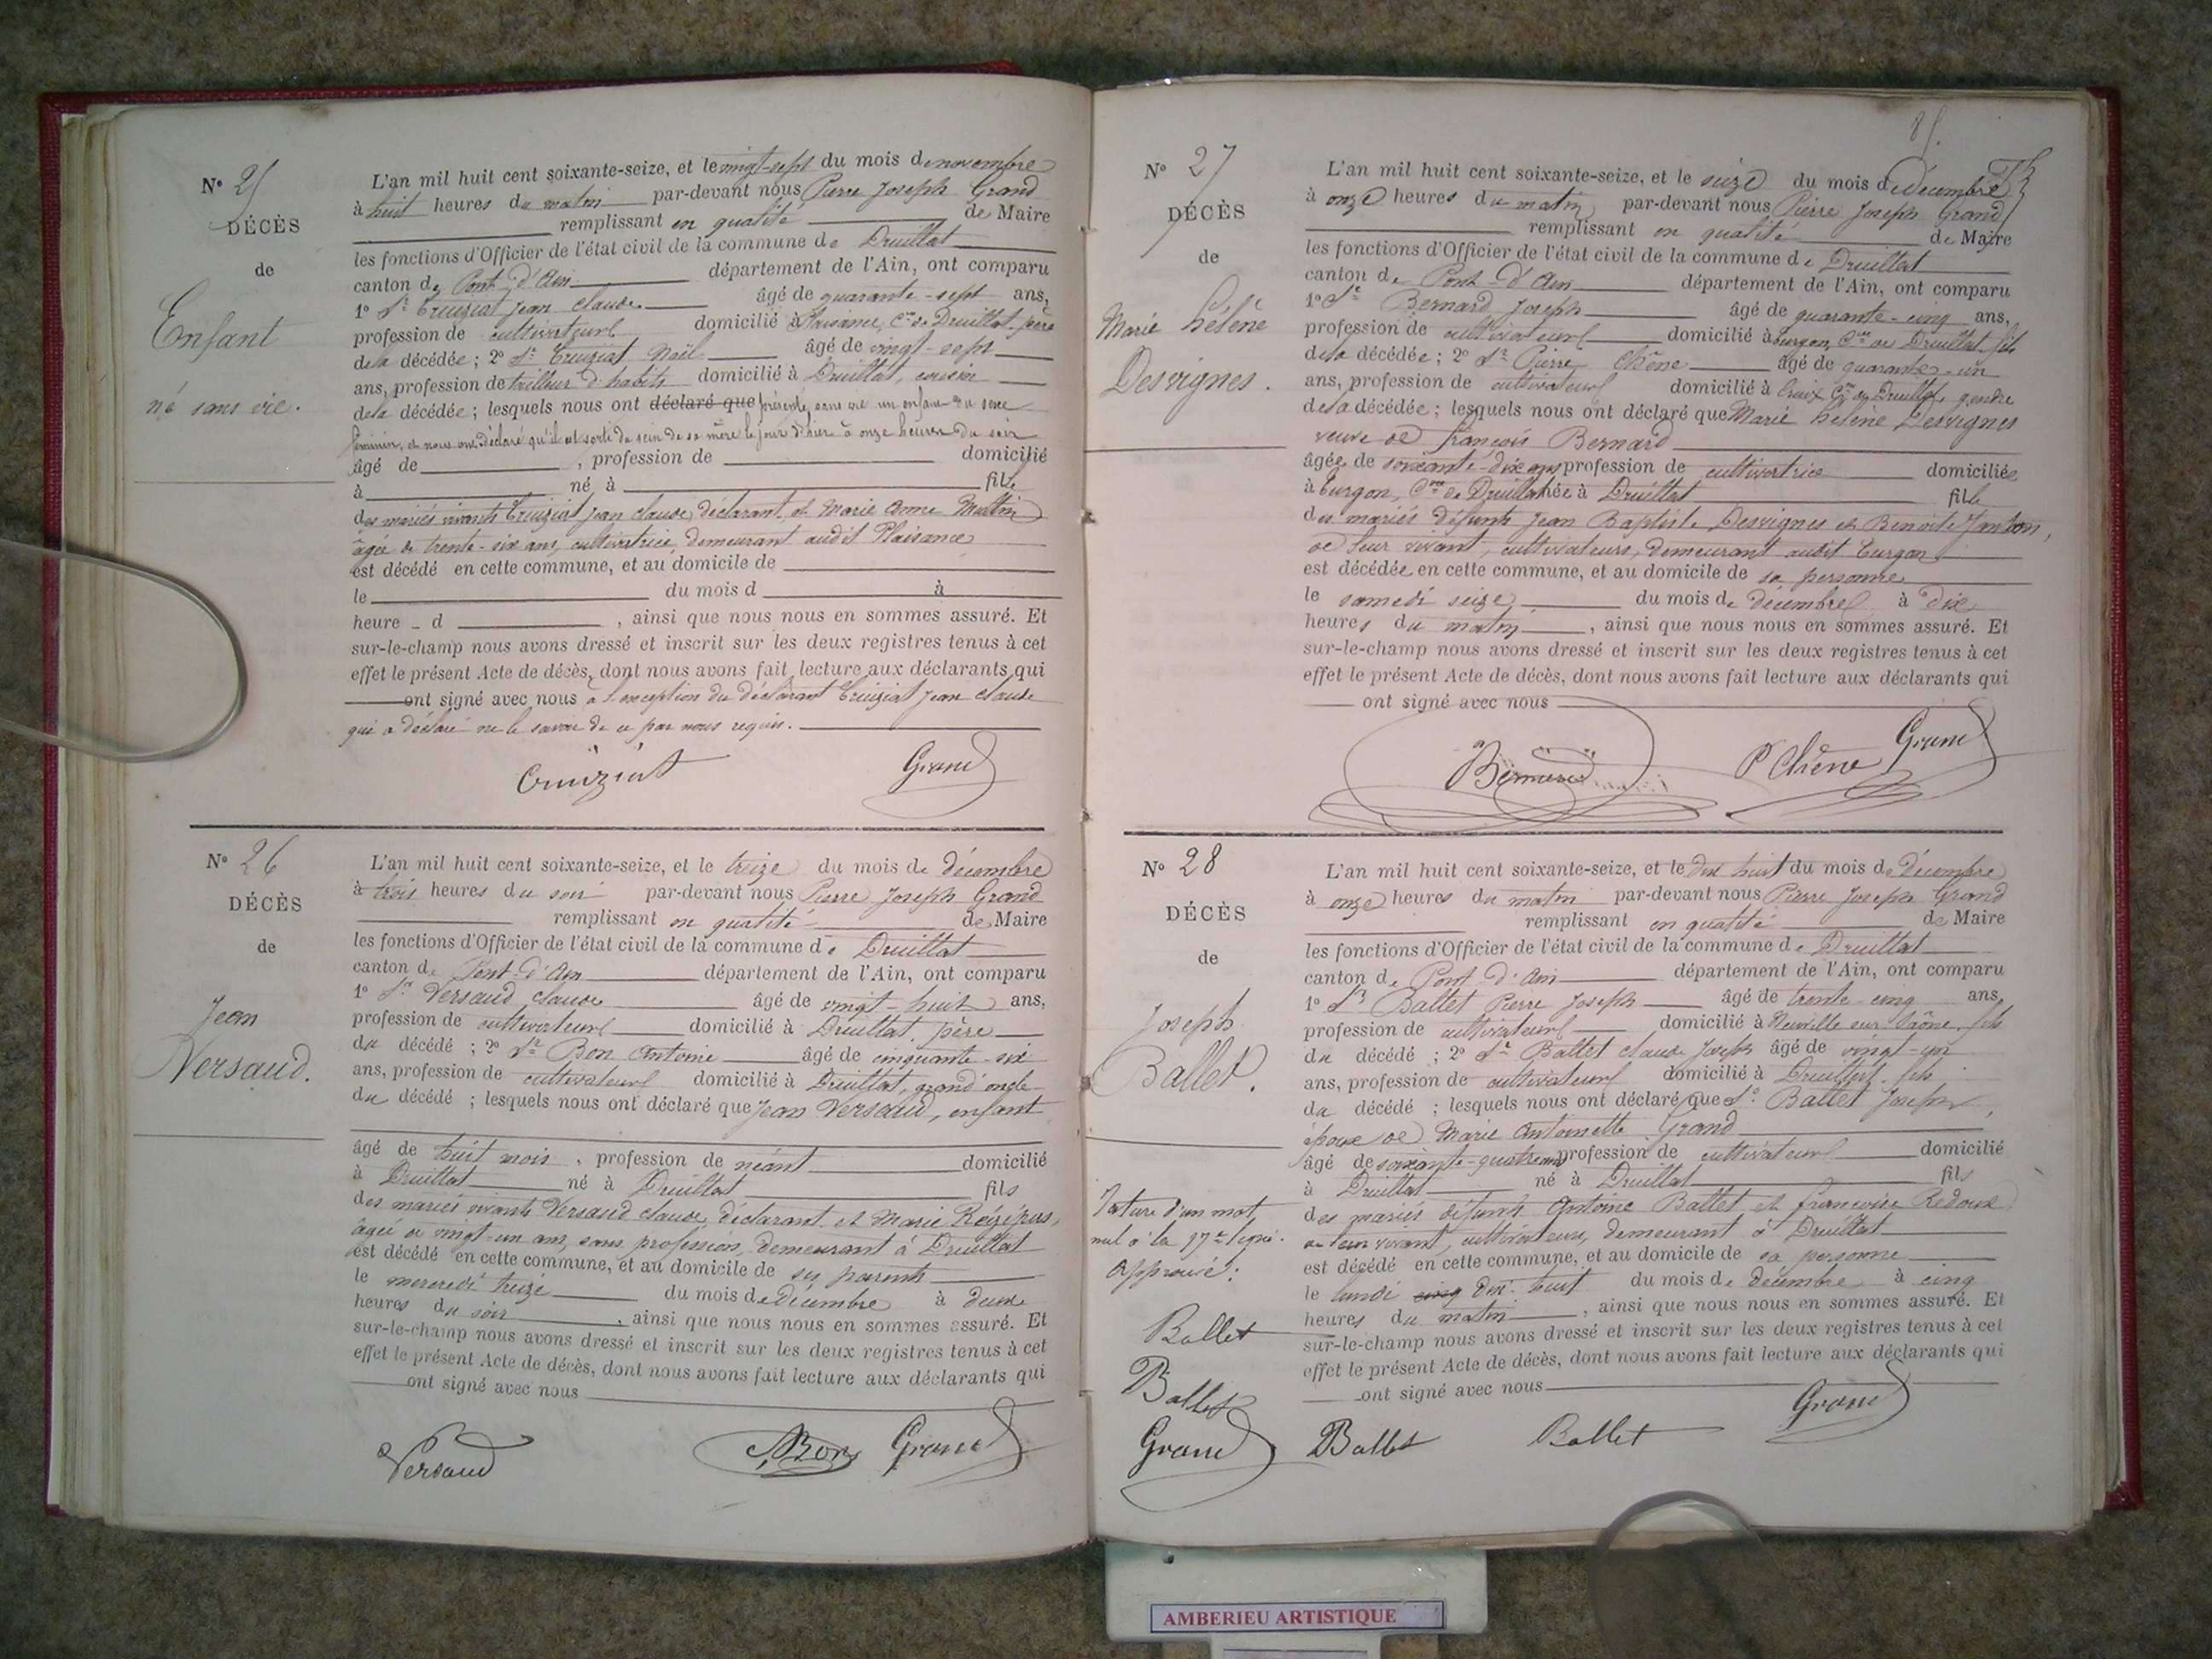 N° 25
DÉCÈS
de
Enfant
né sans vie.
L'an mil huit cent soixante-seize, et le vingt-sept du mois de novembre
à huit heures du matin par-devant nous Pierre Joseph Grand
remplissant en qualité de Maire
les fonctions d'Officier de l'état civil de la commune de Druillat
canton de Pont d'Ain département de l'Ain, ont comparu
1° Sr Cruiziat Jean Claude âgé de quarante-sept ans,
profession de cultivateur domicilié à Plaisance, Cne de Druillat, père
de la décédée ; 2° Sr Cruiziat Noël âgé de vingt-sept
ans, profession de tailleur d'habits domicilié à Druillat, cousin
de la décédée ; lesquels nous ont déclaré que présenté sans vie un enfant du sexe
féminin, et nous ont déclaré qu'il est sorti du sein de sa mère le jour d'hier à onze heures du soir
âgé de , profession de domicilié
à né à fille
des mariés vivants Cruiziat Jean Claude, déclarant, et Marie Anne
âgée de trente-six ans, cultivatrice, demeurant audit Plaisance
est décédé en cette commune, et au domicile de
le du mois d à
heure d , ainsi que nous nous en sommes assuré. Et
sur-le-champ nous avons dressé et inscrit sur les deux registres tenus à cet
effet le présent Acte de décès, dont nous avons fait lecture aux déclarants qui
ont signé avec nous à l'exception du déclarant Cruiziat Jean Claude
qui a déclaré ne le savoir de ce par nous requis.
Cruiziat Grand
N° 26
DÉCÈS
de
Jean
Versaud.
L'an mil huit cent soixante-seize, et le treize du mois de décembre
à trois heures du soir par-devant nous Pierre Joseph Grand
remplissant en qualité de Maire
les fonctions d'Officier de l'état civil de la commune de Druillat
canton de Pont-d'Ain département de l'Ain, ont comparu
1° Sr Versaud Claude âgé de vingt-huit ans,
profession de cultivateur domicilié à Druillat père
du décédé ; 2° Sr Bon Antoine âgé de cinquante-six
ans, profession de cultivateur domicilié à Druillat, grand'oncle
du décédé ; lesquels nous ont déclaré que Jean Versaud, enfant
âgé de huit mois , profession de néant domicilié
à Druillat né à Druillat fils
des mariés vivants Versaud Claude, déclarant et Marie
âgée de vingt-un ans, sans profession, demeurant à Druillat
est décédé en cette commune, et au domicile de ses parents
le mercredi treize du mois de Décembre à deux
heures du soir , ainsi que nous nous en sommes assuré. Et
sur-le-champ nous avons dressé et inscrit sur les deux registres tenus à cet
effet le présent Acte de décès, dont nous avons fait lecture aux déclarants qui
ont signé avec nous
Versaud Bon Grand
N° 27
DÉCÈS
de
Marie hélène
Desvignes.
L'an mil huit cent soixante-seize, et le seize du mois de décembre
à onze heures du matin par-devant nous Pierre Joseph Grand
remplissant en qualité de Maire
les fonctions d'Officier de l'état civil de la commune de Druillat
canton de Pont-d'Ain département de l'Ain, ont comparu
1° Sr Bernard Joseph âgé de quarante-cinq ans,
profession de cultivateur domicilié à Turgon, Cne de Druillat fils
de la décédée ; 2° Sr Pierre Chêne âgé de quarante-un
ans, profession de cultivateur domicilié à Cne de Druillat, gendre
de la décédée ; lesquels nous ont déclaré que Marie hélène Desvignes
veuve de françois Bernard
âgée de soixante-dix ans profession de cultivatrice domiciliée
à Turgon, Cne de Druillat née à Druillat fille
des mariés défunts Jean Baptiste Desvignes et Benoite Janton,
de leur vivant, cultivateurs, demeurant audit Turgon
est décédée en cette commune, et au domicile de sa personne
le samedi seize du mois de décembre à dix
heures du matin , ainsi que nous nous en sommes assuré. Et
sur-le-champ nous avons dressé et inscrit sur les deux registres tenus à cet
effet le présent Acte de décès, dont nous avons fait lecture aux déclarants qui
ont signé avec nous
Bernard P Chêne Grand
N° 28
DÉCÈS
de
Joseph
Ballet.
L'an mil huit cent soixante-seize, et le dix huit du mois de Décembre
à onze heures du matin par-devant nous Pierre Joseph Grand
remplissant en qualité de Maire
les fonctions d'Officier de l'état civil de la commune de Druillat
canton de Pont-d'Ain département de l'Ain, ont comparu
1° Sr Ballet Pierre Joseph âgé de trente-cinq ans,
profession de cultivateur domicilié à Neuville sur Saône, fils
du décédé ; 2° Sr Ballet Claude Joseph âgé de vingt-un
ans, profession de cultivateur domicilié à Druillat, fils
du décédé ; lesquels nous ont déclaré que Sr Ballet Joseph,
époux de Marie Antoinette Grand
âgé de soixante-quatre ans profession de cultivateur domicilié
à Druillat né à Druillat fils
des mariés défunts Antoine Ballet et françoise Redoux
de leur vivant, cultivateurs, demeurant à Druillat
est décédé en cette commune, et au domicile de sa personne
le lundi cinq dix-huit du mois de décembre à cinq
heures du matin , ainsi que nous nous en sommes assuré. Et
sur-le-champ nous avons dressé et inscrit sur les deux registres tenus à cet
effet le présent Acte de décès, dont nous avons fait lecture aux déclarants qui
ont signé avec nous
Rature d'un mot
nul à la 17e ligne.
Approuvé:
Ballet
Ballet
Grand
Ballet Ballet Grand
AMBERIEU ARTISTIQUE